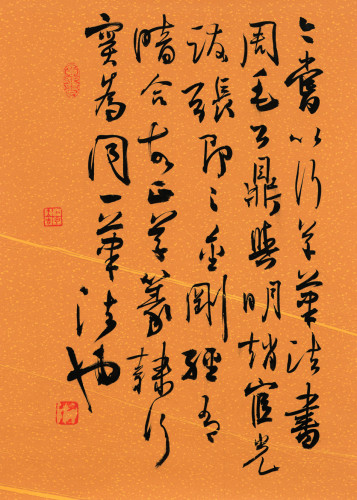 嘗以行草筆法書
周毛公鼎與明趙宧光
跋張即之金剛經有
暗合者正草篆隸行
實為同一筆法也